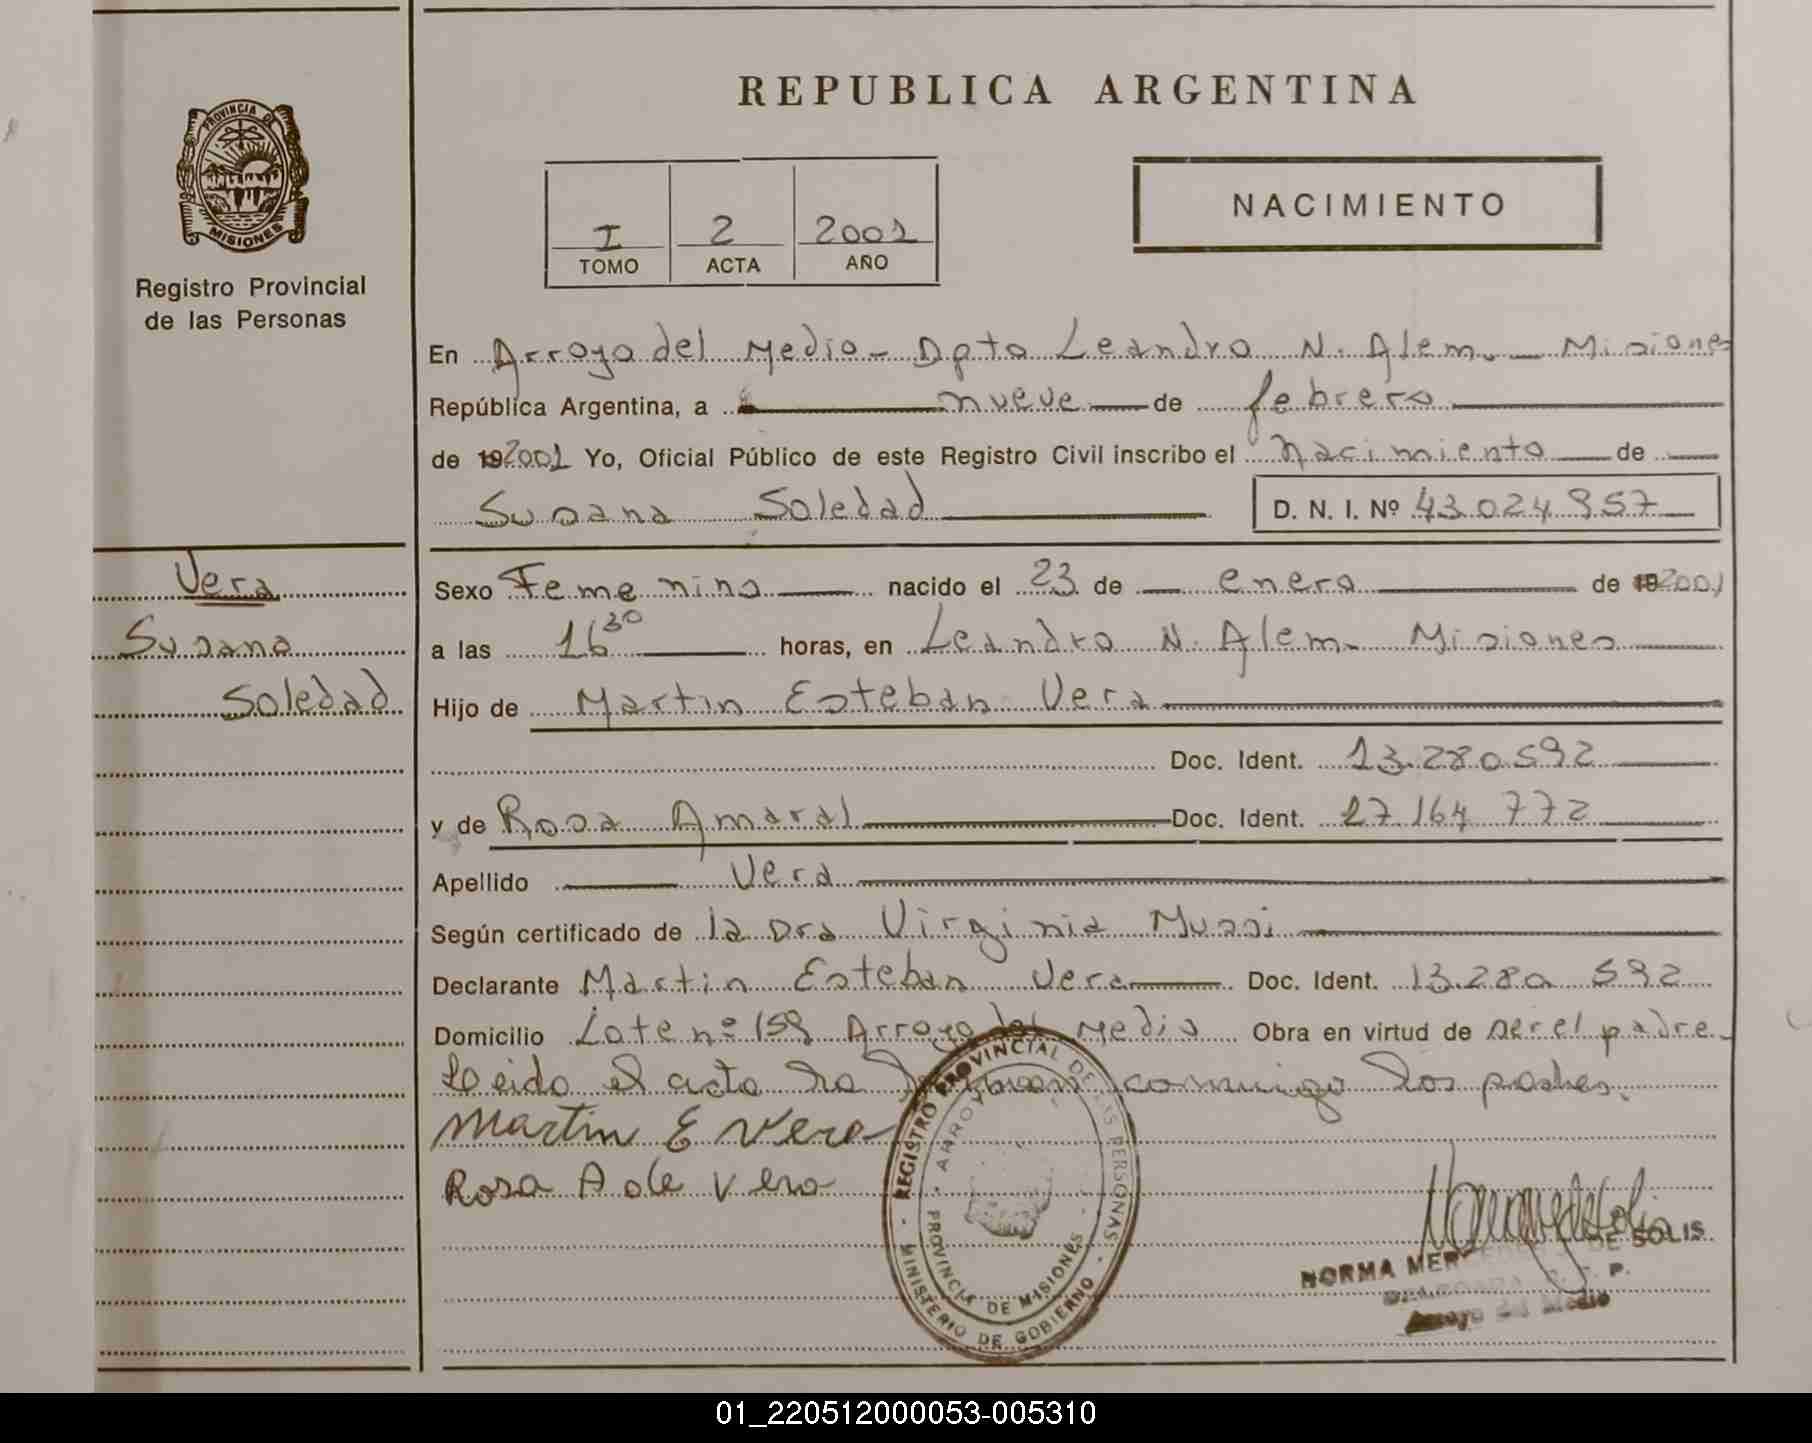 REPUBLICA ARGENTINA
PROVINCIA DE MISIONES
Registro Provincial
de las Personas
I 2 2001
TOMO ACTA AÑO
NACIMIENTO
En Arroyo del Medio - Dpto Leandro N. Alem - Misiones
República Argentina, a nueve de febrero
de 19 2001 Yo, Oficial Público de este Registro Civil inscribo el nacimiento de
Susana Soledad D. N. I. Nº 43.024.957
Vera
Susana
Soledad
Sexo Femenino nacido el 23 de enero de 19 2001
a las 16 30 horas, en Leandro N. Alem - Misiones
Hijo de Martin Esteban Vera
Doc. Ident. 13.280.592
y de Rosa Amaral Doc. Ident. 17 164 772
Apellido Vera
Según certificado de la Dra Virginia Mussi
Declarante Martin Esteban Vera Doc. Ident. 13.280 592
Domicilio Lote nº 159 Arroyo del Medio Obra en virtud de ser el padre.
Leido el acta la firman conmigo los padres.
Martin E Vera
Rosa A de Vera
REGISTRO PROVINCIAL DE LAS PERSONAS
MINISTERIO DE GOBIERNO
PROVINCIA DE MISIONES
NORMA DE SOLIS
Arroyo del Medio
01_220512000053-005310